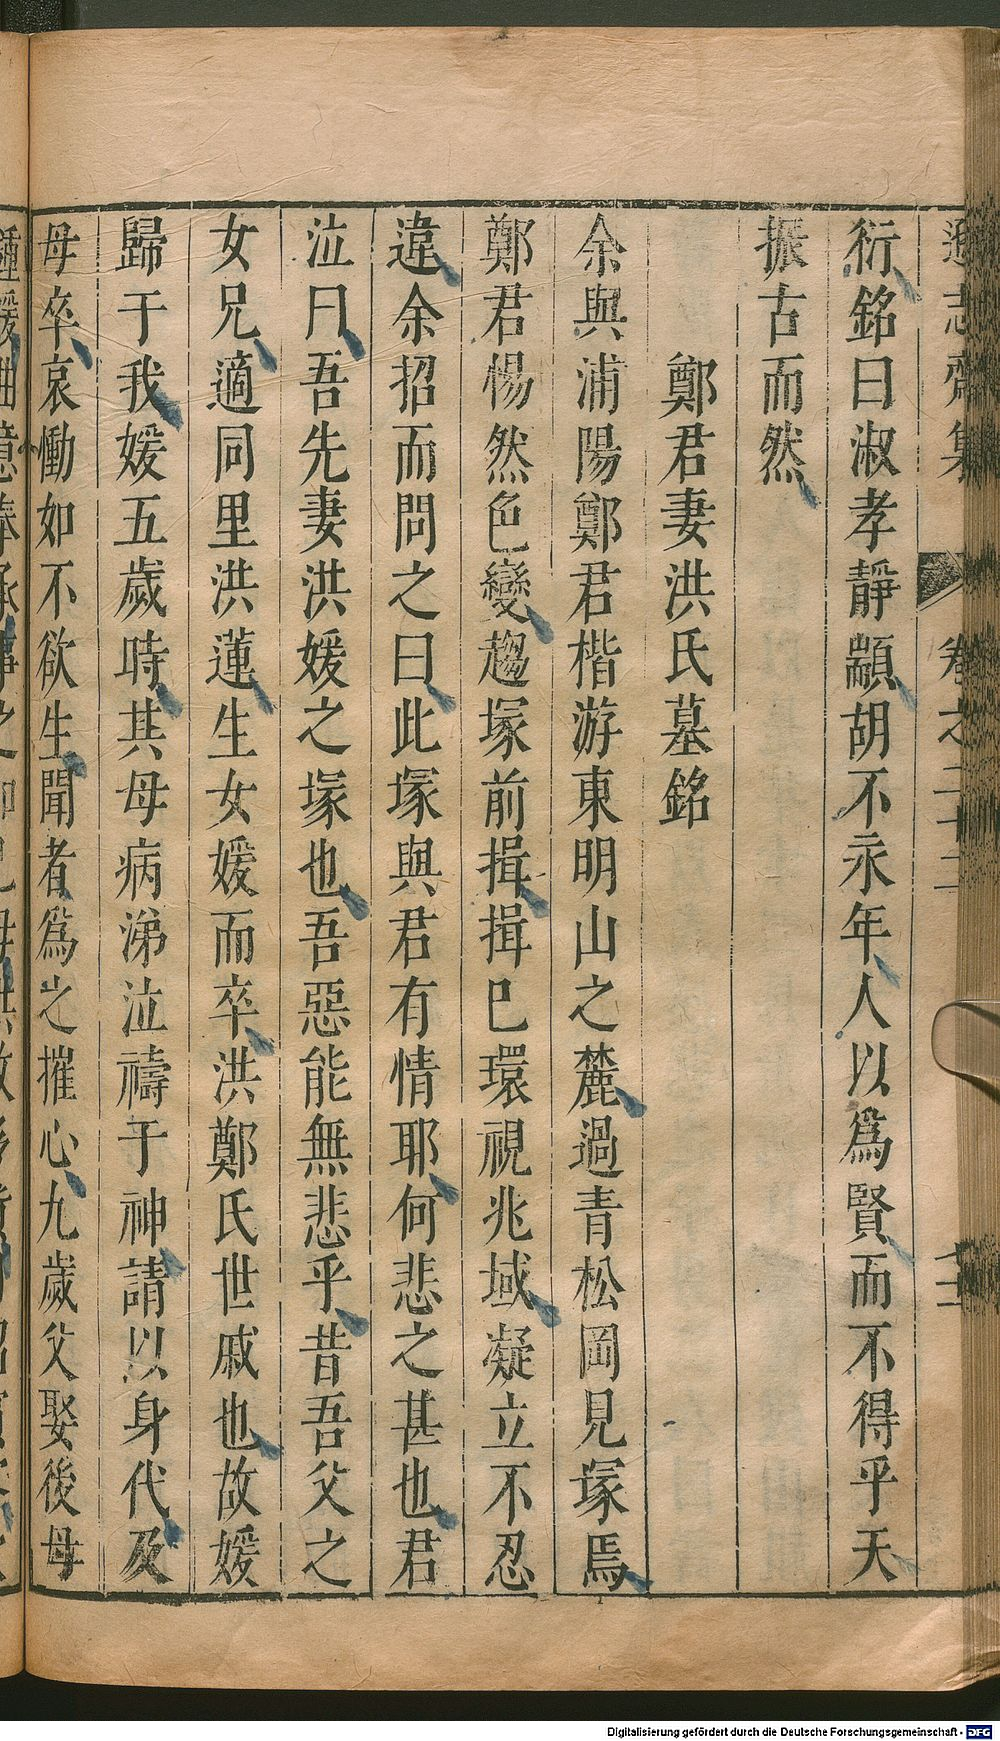 遜志齋集 卷之二十二
衍銘曰淑孝靜顓胡不永年人以爲賢而不得乎天
振古而然
鄭君妻洪氏墓銘
余與浦陽鄭君楷游東明山之麓過青松岡見塚焉
鄭君惕然色變趨塚前揖揖已環視兆域凝立不忍
違余招而問之曰此塚與君有情耶何悲之甚也君
泣曰吾先妻洪媛之塚也吾惡能無悲乎昔吾父之
女兄適同里洪蓮生女媛而卒洪鄭氏世戚也故媛
歸于我媛五歲時其母病涕泣禱于神請以身代及
母卒哀慟如不欲生聞者爲之摧心九歲父娶後母
Digitalisierung gefördert durch die Deutsche Forschungsgemeinschaft - DFG